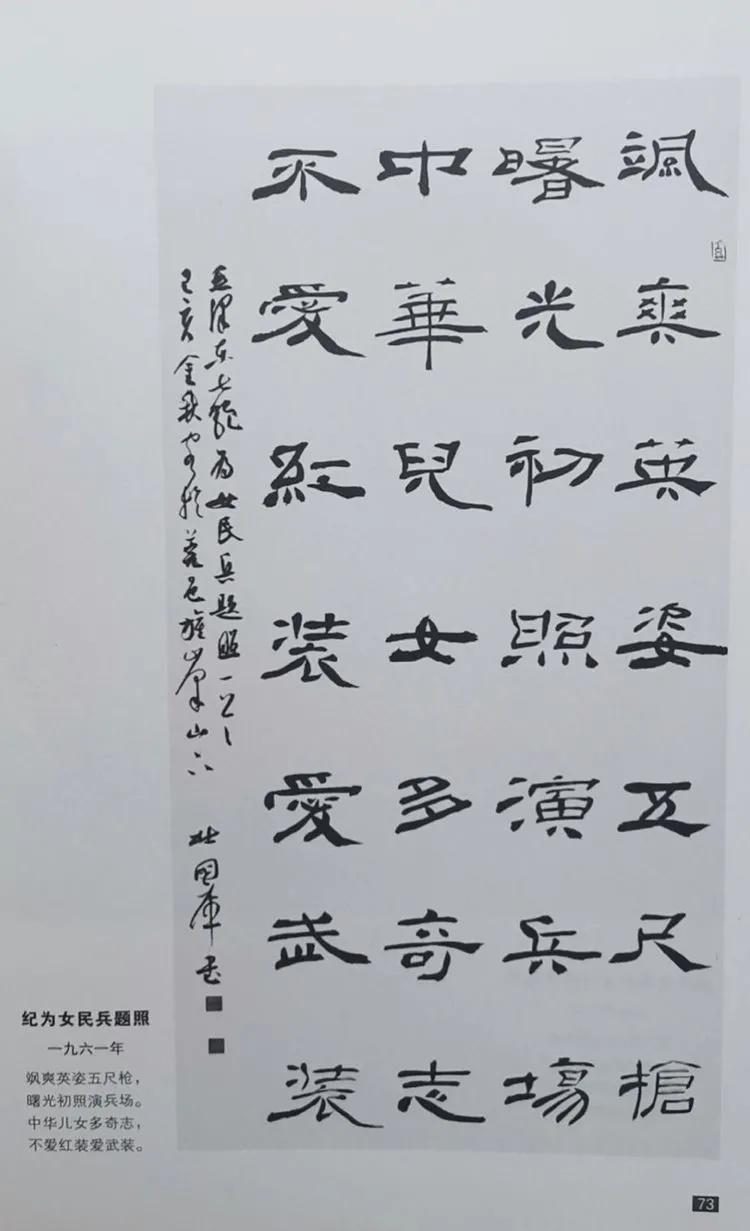 颯爽英姿五尺槍
曙光初照演兵場
中華兒女多奇志
不愛紅装愛武装
毛澤东七绝为女民兵题照一首
己亥金秋 山下 国庫书
纪为女民兵题照
一九六一年
飒爽英姿五尺枪，
曙光初照演兵场。
中华儿女多奇志，
不爱红装爱武装。
73